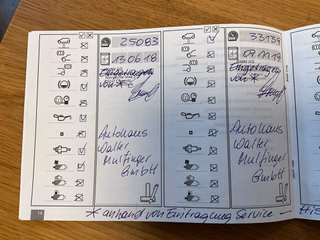 25083
13.06.18
Eingetragen
von *
Autohaus
Walter
Mulfinger
GmbH
33139
07.11.19
Eingetragen
von *
Autohaus
Walter
Mulfinger
GmbH
* anhand von Eintragung Service –